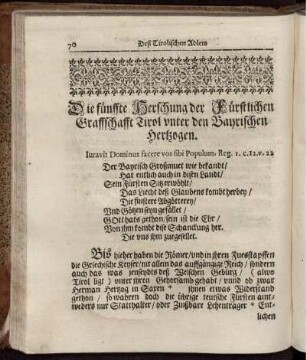 70 Deß Tirolischen Adlers
Die fünffte Herschung der Fürstlichen
Graffschafft Tirol vnter den Bayrischen
Hertzogen.
Iuravit Dominus facere vos sibi Populum. Reg. 1. c. 12. v. 22
Der Bayrisch Großmuet wie bekandt/
Hat entlich auch in disen Landt/
Sein Fürsten Sitz erwöhlt/
Das Liecht deß Glaubens kombt herbey/
Die finstere Abgötterey/
Und Götzen seyn gefället/
GOtt hats gethon/sein ist die Ehr/
Von ihm kombt dise Schanckung her.
Die vns ihm zugesellet.
BIs hieher haben die Römer/vnd in ihren Fuesstapffen
die Griechische Keyser/nit allem das auffgängige Reich / sondern
auch das was jenseyds deß Welschen Gebürg / (alwo
Tirol ligt) vnter ihren Gehorsamb gehabt/ vnnd ob zwar
Herman Hertzog in Saxen * ihnen etwas Widerstand
gethon / so wahren doch die übrige teutsche Fürsten aintweders
nur Statthalter/ oder Zinßbare Lehentrager * Entlichen